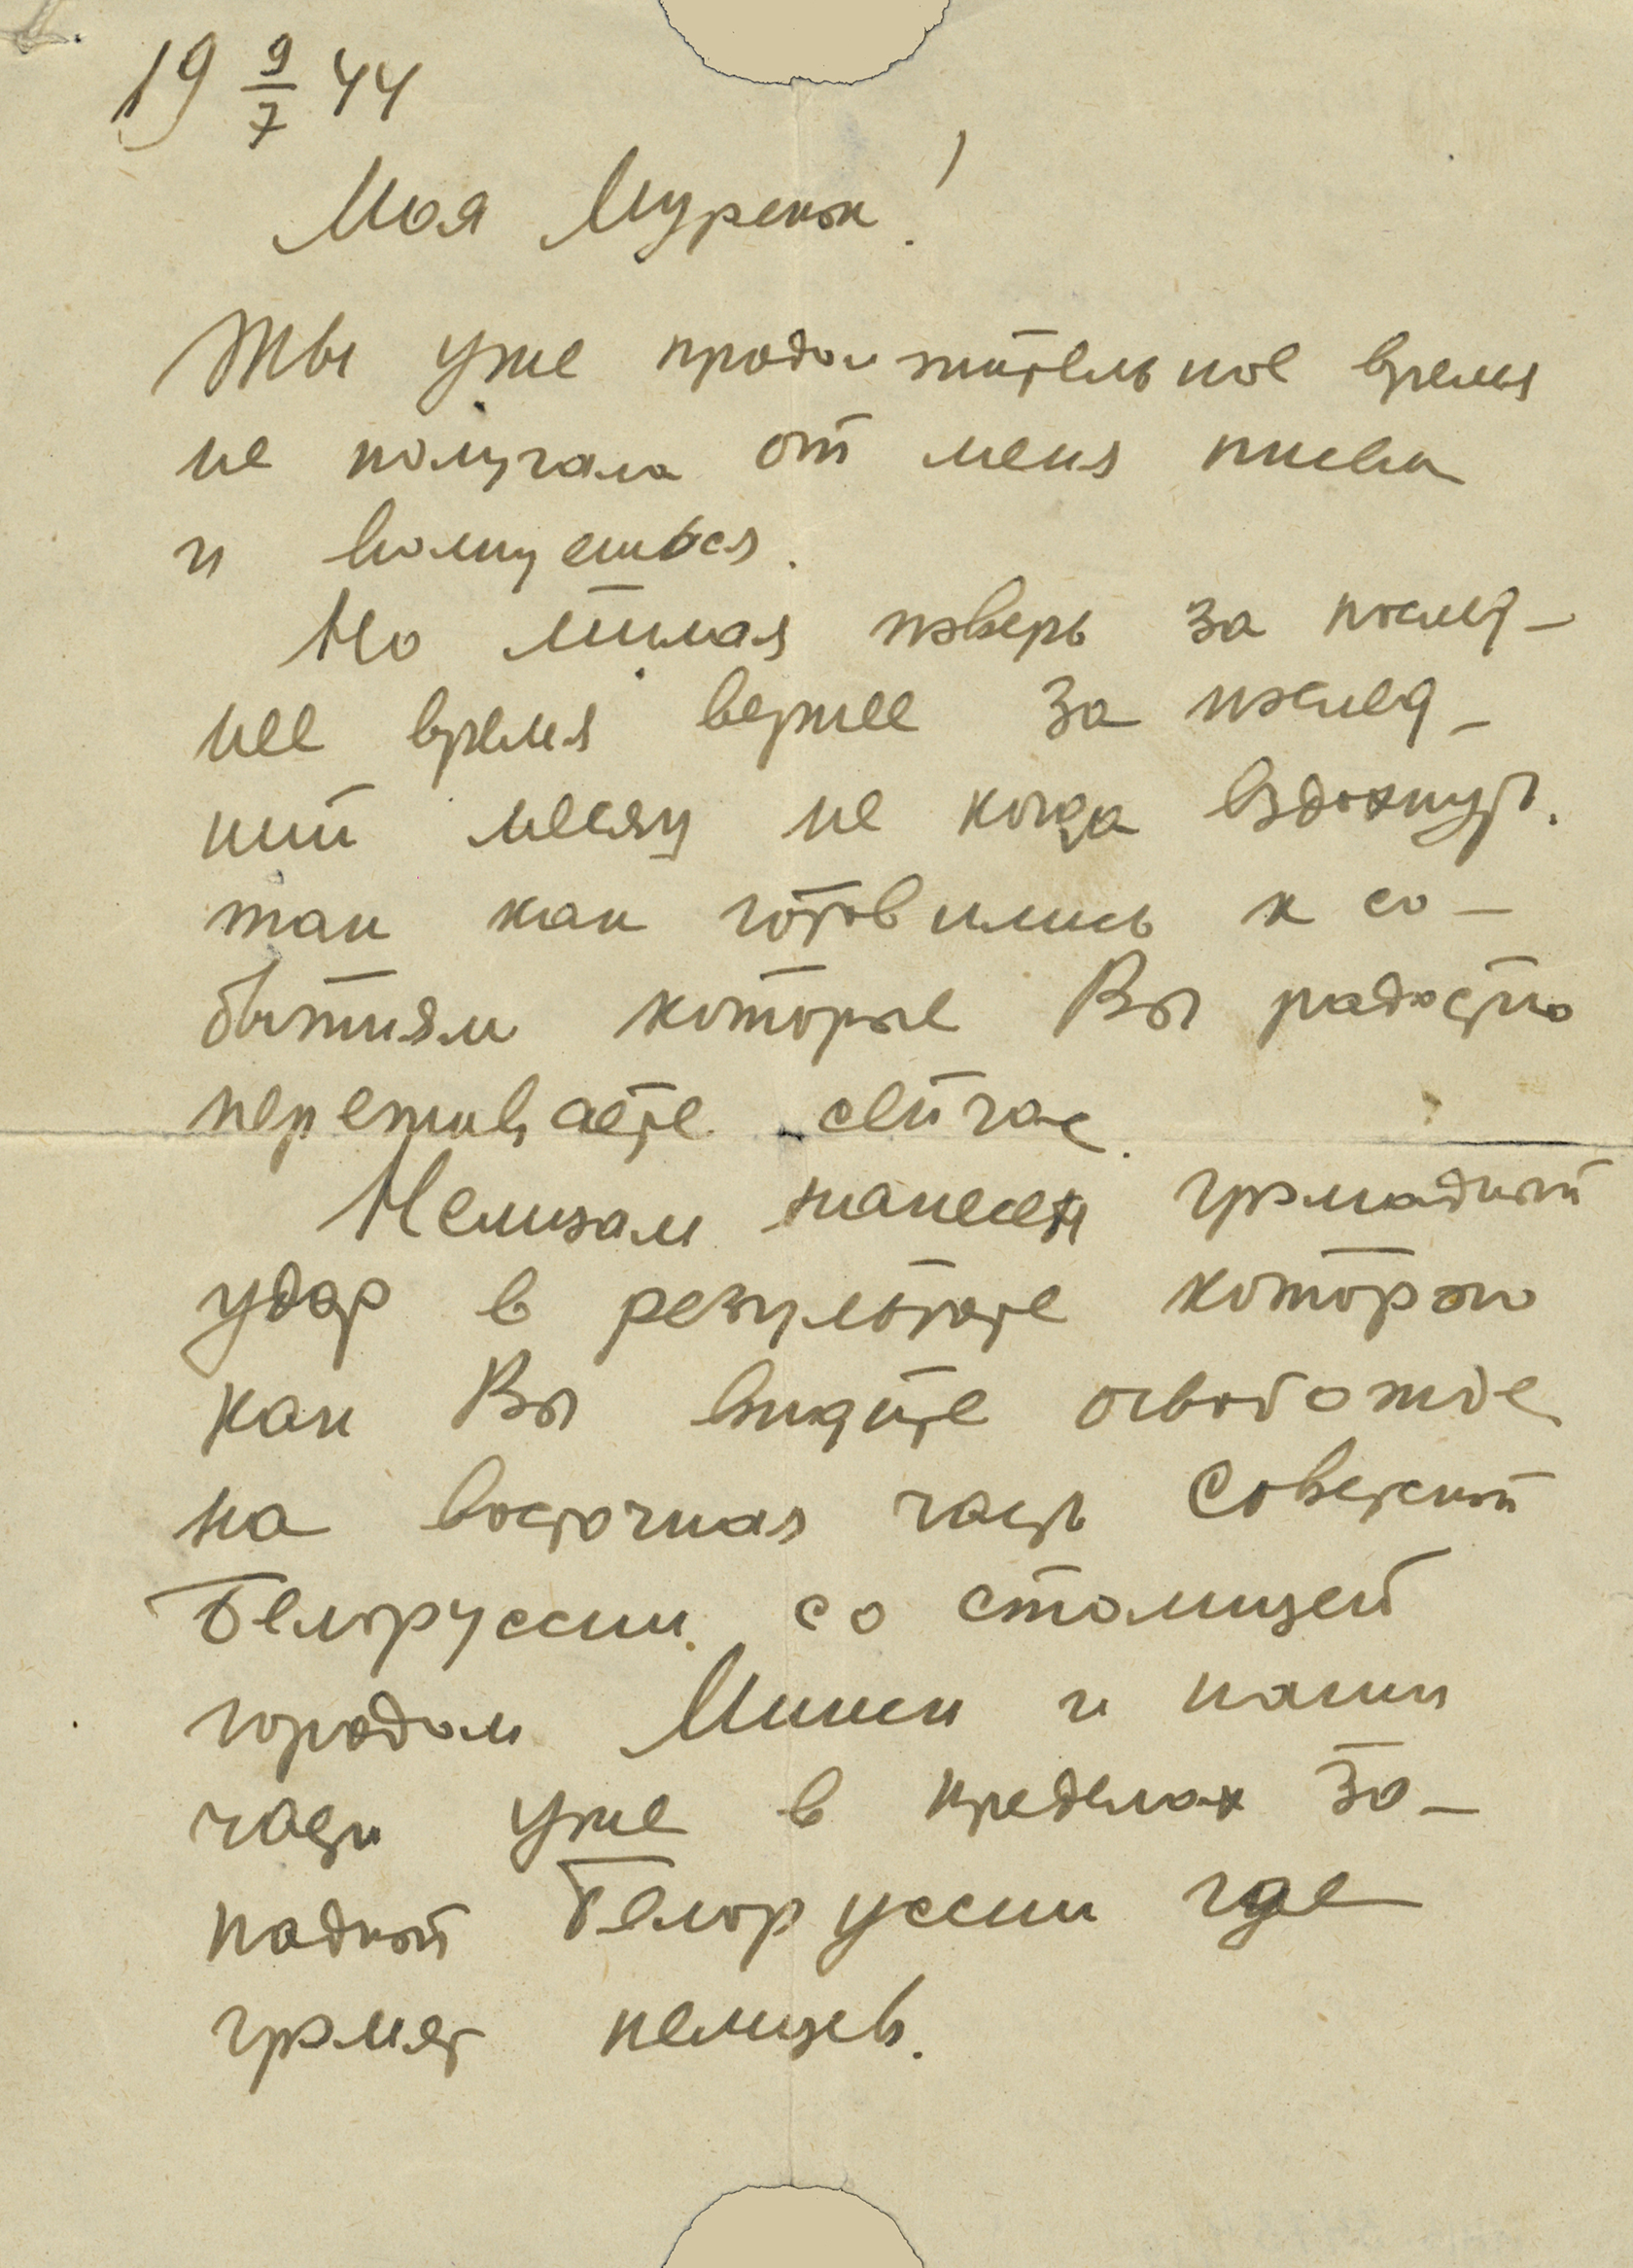 19 9/7 44
Моя Муренок!
Ты уже продолжительное время
не получала от меня писем
и волнуешься.
Но милая поверь за послед-
нее время вернее за послед-
ний месяц не когда вздохнуть.
так как готовились к со-
бытиям которые Вы радостно
переживаете сейчас.
Немцам нанесен громадный
удар в результате которого
как Вы видите освобожде
на восточная часть Советской
Белоруссии со столицей
городом Минск и наши
части уже в пределах За-
падной Белоруссии где
громят немцев.